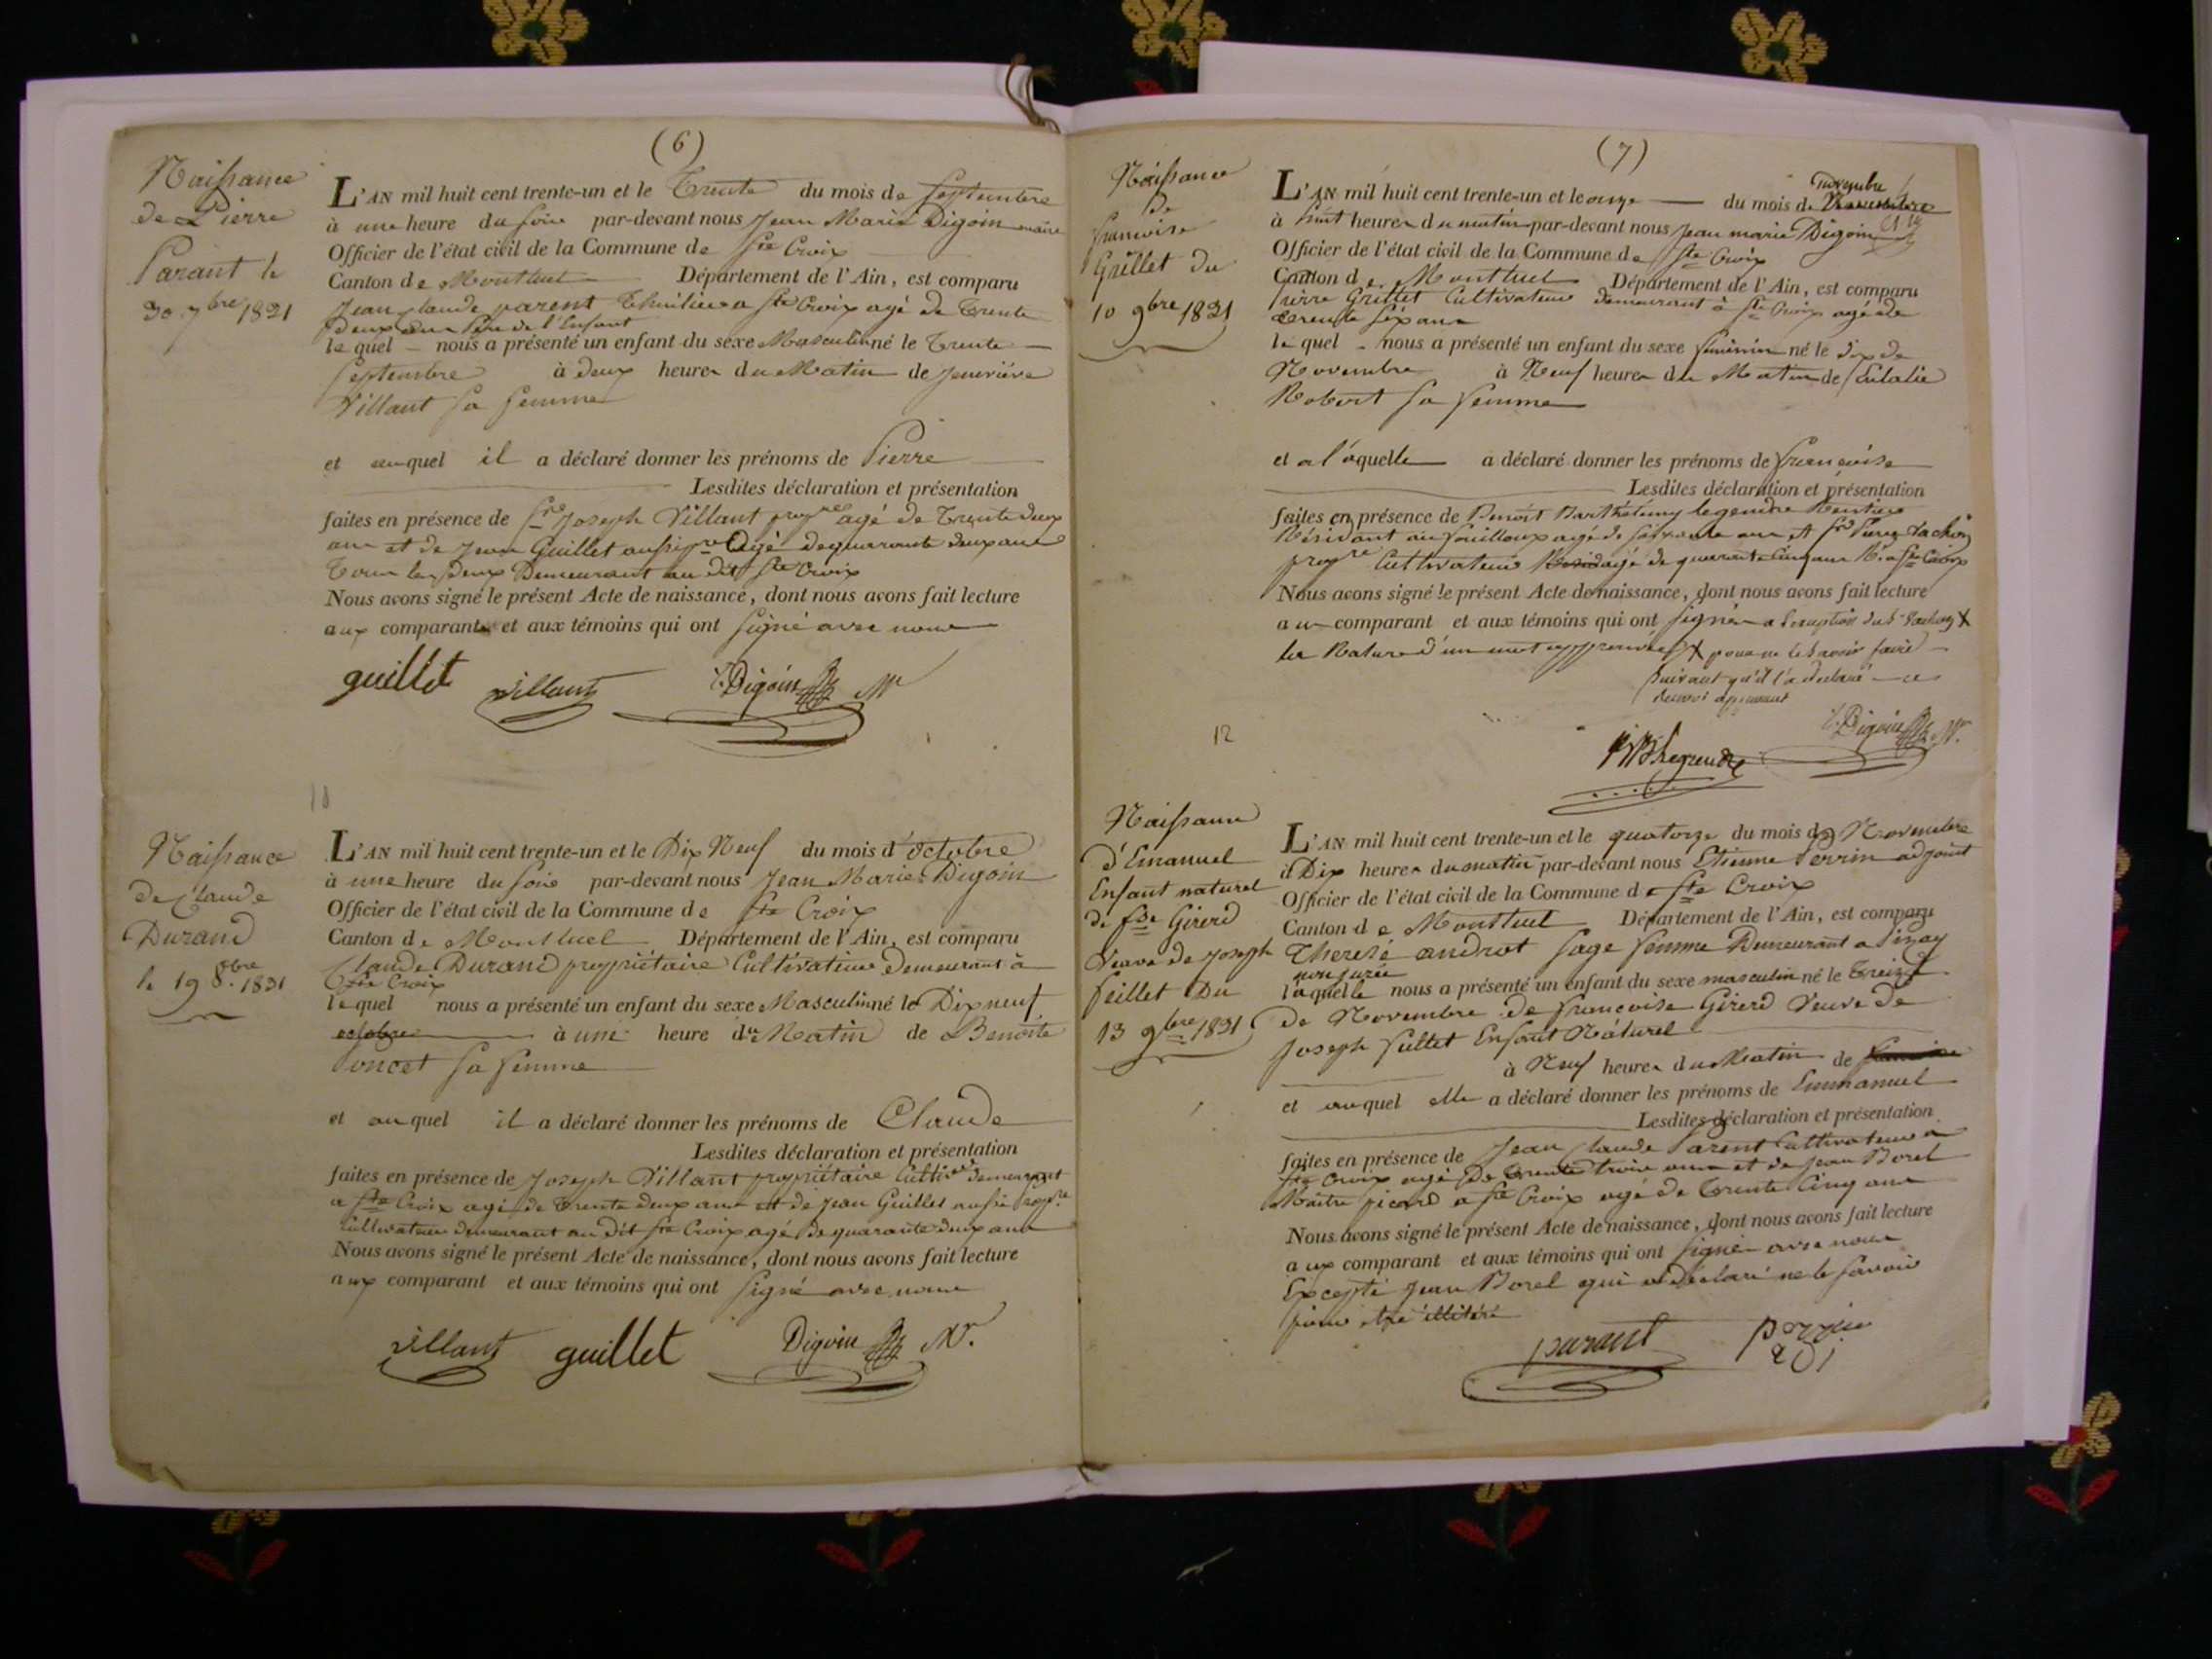 (6)
Naissance
de Pierre
Parant le
30 7bre 1831
L'AN mil huit cent trente-un et le Trente du mois de Septembre
à une heure du soir par-devant nous Jean Marie Digoin maire
Officier de l'état civil de la Commune de Ste Croix
Canton de Montluel Département de l'Ain, est comparu
Jean Claude parent Thuilier a Ste Croix agé de Trente
Deux ans Père de l'Enfant
lequel nous a présenté un enfant du sexe Masculin né le Trente
Septembre à Deux heures du Matin de jeneviève
Villant sa femme
et auquel il a déclaré donner les prénoms de Pierre
Lesdites déclaration et présentation
faites en présence de Joseph Villant propre agé de Trente deux
ans et de Jean Guillet aussi pre Agé de quarante deux ans
Tous les Deux Demeurant au dit Ste Croix
Nous avons signé le présent Acte de naissance, dont nous avons fait lecture
aux comparants et aux témoins qui ont signé avec nous
guillet villant Digoin Mr
10
Naissance
de Claude
Durand
le 19 8bre 1831
L'AN mil huit cent trente-un et le Dix Neuf du mois d'octobre
à une heure du soir par-devant nous Jean Marie Digoin
Officier de l'état civil de la Commune de Ste Croix
Canton de Montluel Département de l'Ain, est comparu
Claude Durand propriétaire Cultivateur demeurant à
Ste Croix
lequel nous a présenté un enfant du sexe Masculin né le Dix neuf
octobre à une heure du Matin de Benoite
Poncet sa femme
et auquel il a déclaré donner les prénoms de Claude
Lesdites déclaration et présentation
faites en présence de Joseph Villant propriétaire Cultivr demeurant
a Ste Croix agé de Trente deux ans et de Jean Guillet aussi propre
Cultivateur demeurant au Dit Ste Croix agé de quarante deux ans
Nous avons signé le présent Acte de naissance, dont nous avons fait lecture
aux comparant et aux témoins qui ont signé avec nous
villant guillet Digoin Mr.
(7)
Naissance
de
francoise
Grillet du
10 9bre 1831
L'AN mil huit cent trente-un et le onze du mois de novembre
à huit heures du matin par-devant nous Jean marie Digoin
Officier de l'état civil de la Commune de Ste Croix
Canton de Montluel Département de l'Ain, est comparu
Pierre Grillet Cultivateur demeurant à Ste Croix agé de
trente six ans
lequel nous a présenté un enfant du sexe feminin né le dix de
Novembre à Neuf heures du Matin de Eulalie
Robert sa femme
et a laquelle a déclaré donner les prénoms de francoise
Lesdites déclaration et présentation
faites en présence de Benoit Barthélemy legendre Rentier
Résidant au fouilloux agé de soixante ans et Sr Pierre Vachon
propre Cultivateur agé de quarante Cinq ans Rt a Ste Croix
Nous avons signé le présent Acte de naissance, dont nous avons fait lecture
au comparant et aux témoins qui ont signés a l'exception du Sr Vachon X
les Rature d'un mot approuvées X pour ne le savoir faire
suivant qu'il l'a declaré
BBLegendre Digoin Mr.
12
Naissance
d'Emanuel
Enfant naturel
de fse Girerd
Veuve de joseph
feillet Du
13 9bre 1831
L'AN mil huit cent trente-un et le quatorze du mois de Novembre
à Dix heures du matin par-devant nous Etienne Perrin adjoint
Officier de l'état civil de la Commune de Ste Croix
Canton de Montluel Département de l'Ain, est comparu
Theresé androt sage femme Demeurant a Pizay
non jurée
laquelle nous a présenté un enfant du sexe masculin né le Treize
de Novembre de francoise Girerd Veuve de
Joseph feillet Enfant Náturel
à Neuf heures du Matin de
et auquel elle a déclaré donner les prénoms de Emmanuel
Lesdites déclaration et présentation
faites en présence de Jean Claude Parent Cultivateur a
Ste Croix agé de Trente trois ans et de Jean Borel
Maitre a Ste Croix agé de Trente Cinq ans
Nous avons signé le présent Acte de naissance, dont nous avons fait lecture
aux comparant et aux témoins qui ont signés avec nous
Excepté Jean Borel qui a déclaré ne le savoir
pour etre illitéré
parant Perrin
adj